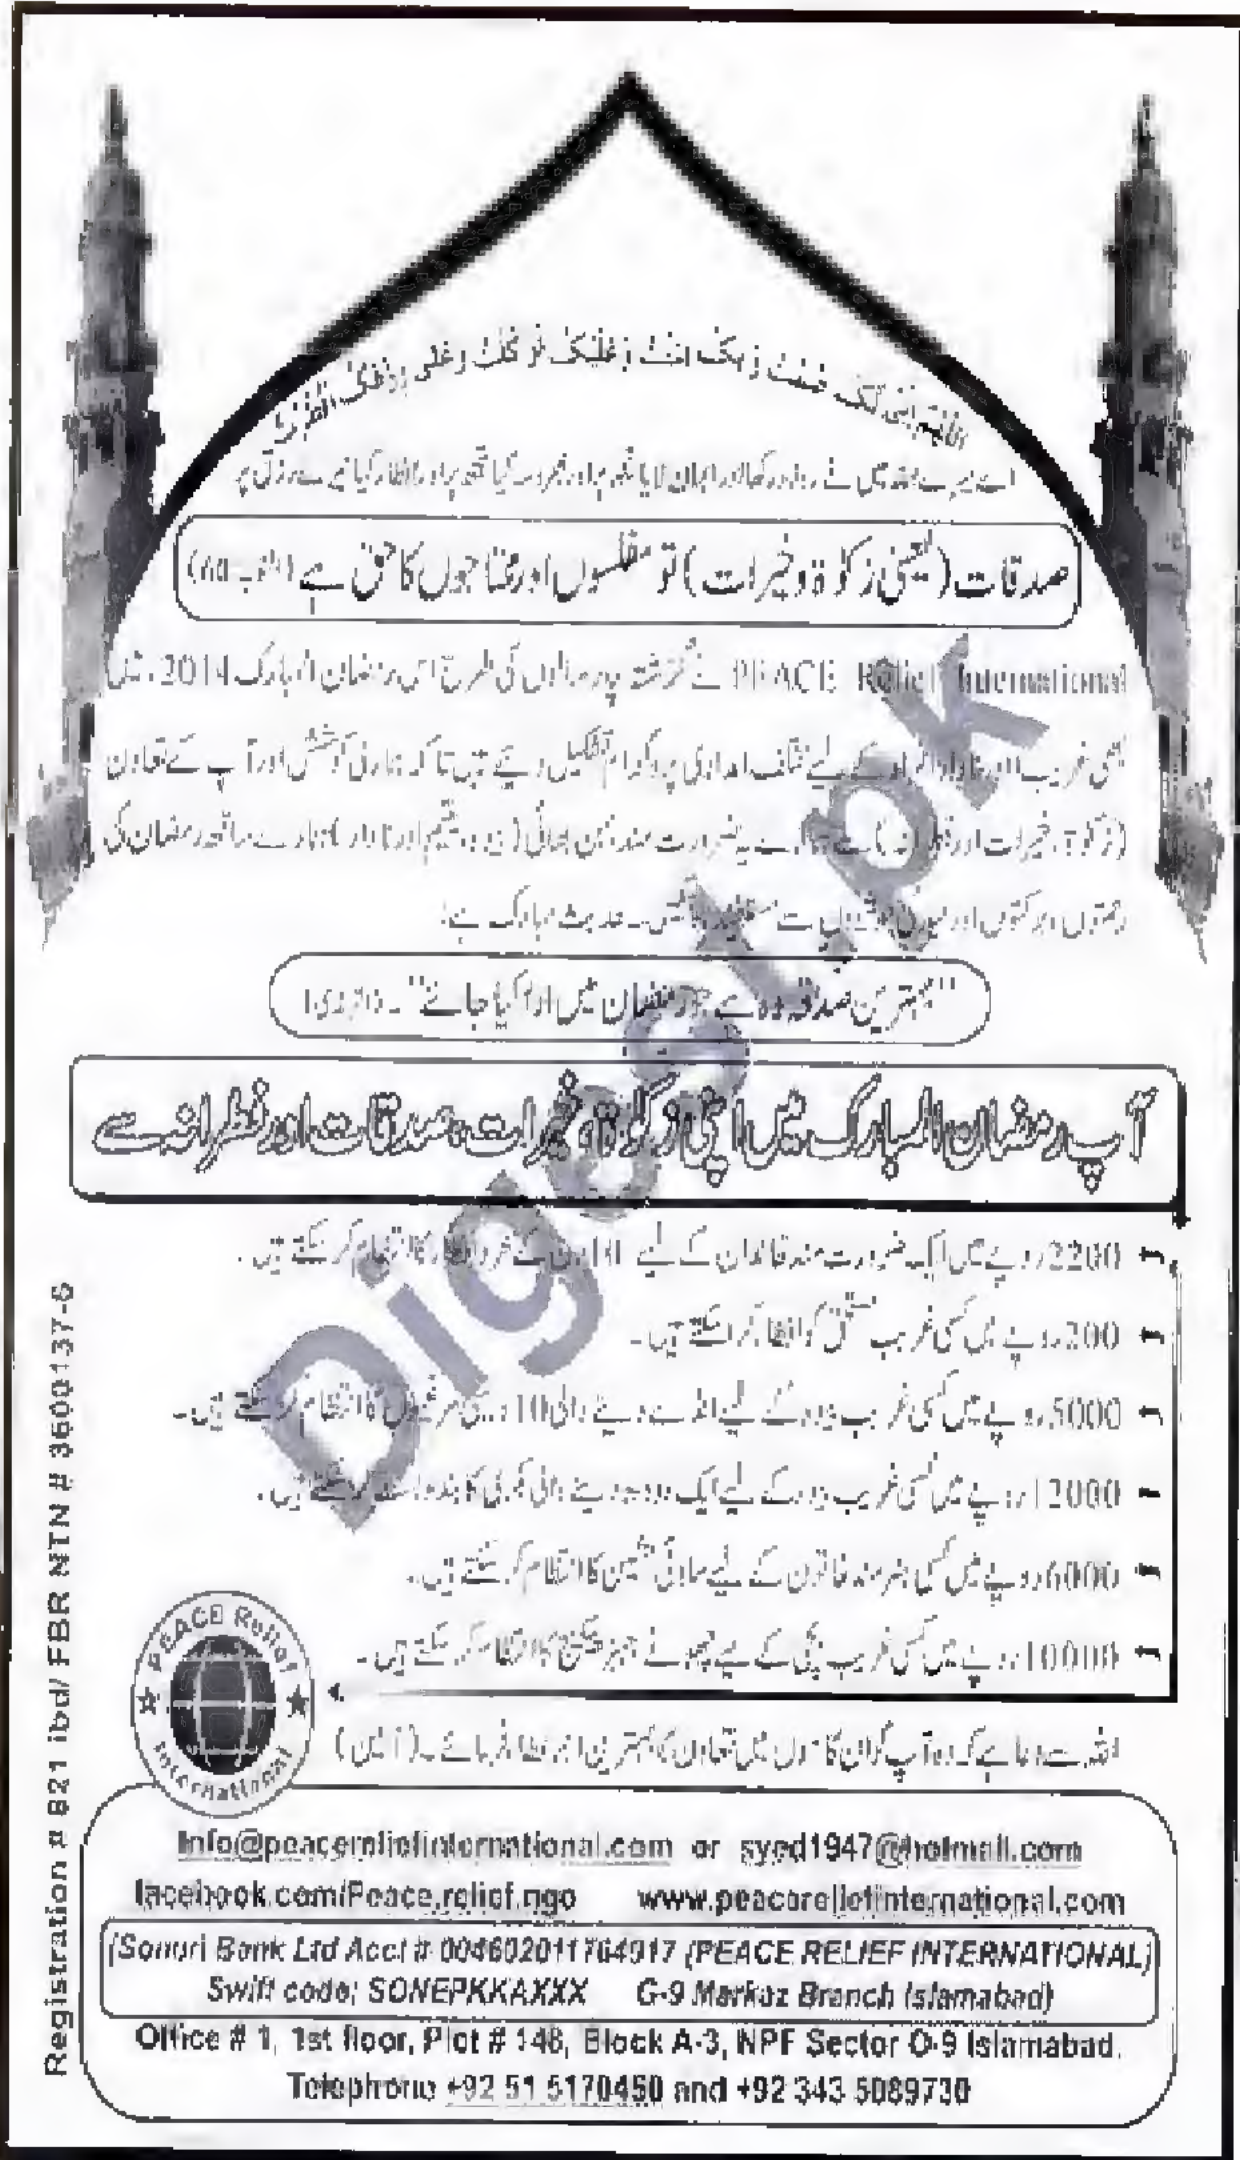 اللهم انی لک صمت وبک امنت وعلیک توکلت وعلی رزقک افطرت
اے میرے اللہ میں نے روزہ رکھا اور ایمان لایا تجھ پر اور بھروسہ کیا تجھ پر اور افطار کیا تیرے رزق پر
صدقات (یعنی زکوٰۃ و خیرات) تو مفلسوں اور محتاجوں کا حق ہے (التوبہ-60)
PEACE Relief International نے گزشتہ سالوں کی طرح اس رمضان المبارک 2014ء میں
بھی غریب اور نادار افراد کے لیے مختلف امدادی پروگرام تشکیل دیے ہیں تاکہ ہماری کوشش اور آپ کے تعاون
(زکوٰۃ، خیرات اور) سے ہمارے یہ ضرورت مند بہن بھائی (بیوہ، یتیم اور نادار) ہمارے ساتھ رمضان کی
رحمتوں، برکتوں اور سے ۔ حدیث مبارک ہے:
"بہترین صدقہ وہ ہے جو رمضان میں ادا کیا جائے"۔ (ترمذی)
آپ رمضان المبارک میں اپنی زکوٰۃ، خیرات، صدقات اور فطرانے سے
2200 روپے میں ایک ضرورت مند خاندان کے لیے کے سحر و افطار کا انتظام کر سکتے ہیں۔
200 روپے میں کسی غریب مستحق کو افطار کرا سکتے ہیں۔
5000 روپے میں کسی غریب بیوہ کے لیے انڈے دینے والی 10 مرغیوں کا انتظام کر سکتے ہیں۔
12000 روپے میں کسی غریب بیوہ کے لیے ایک دودھ دینے والی بکری کا بندوبست کر سکتے ہیں۔
6000 روپے میں کسی ہنر مند خاتون کے لیے سلائی مشین کا انتظام کر سکتے ہیں۔
10000 روپے میں کسی غریب بچی کے لیے چھوٹے جہیز پیکج کا انتظام کر سکتے ہیں۔
اللہ سے دعا ہے کہ وہ آپ کو ان کاموں میں تعاون کا بہترین اجر عطا فرمائے۔ (آمین)
PEACE Relief International
Info@peacereliefinternational.com or syed1947@hotmail.com
facebook.com/Peace.relief.ngo www.peacereliefinternational.com
(Soneri Bank Ltd Acct # 004602011764917 (PEACE RELIEF INTERNATIONAL)
Swift code; SONEPKKAXXX G-9 Markaz Branch Islamabad)
Office # 1, 1st floor, Plot # 148, Block A-3, NPF Sector O-9 Islamabad.
Telephone +92 51 5170450 and +92 343 5089730
Registration # 821 ibd/ FBR NTN # 3600137-6